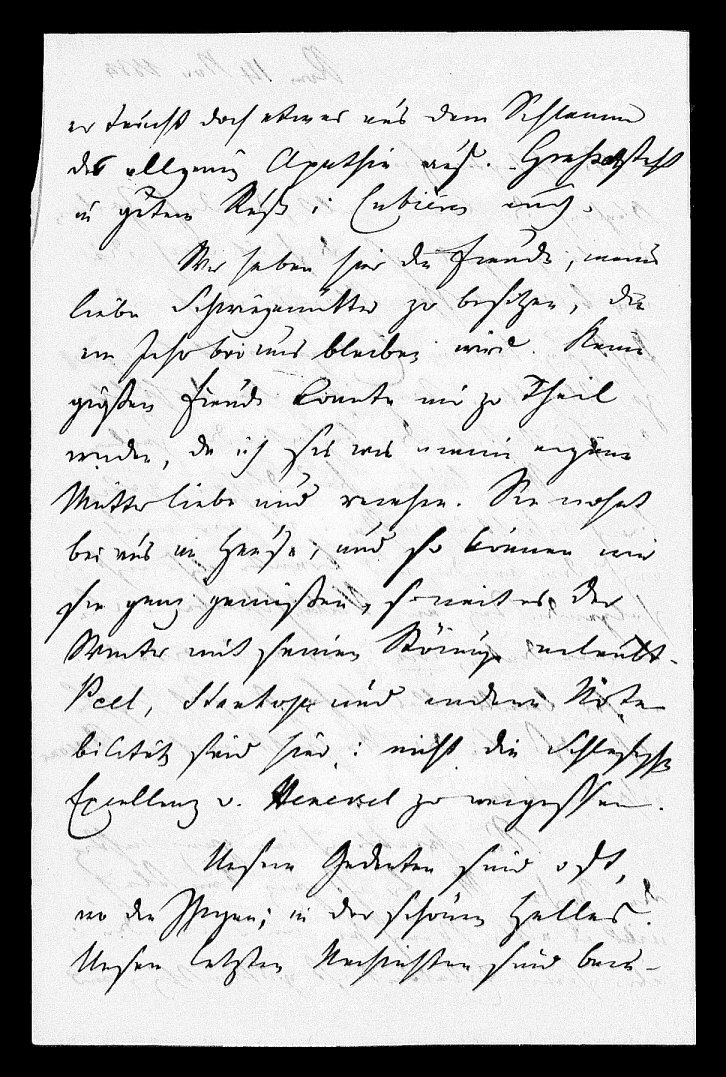 er taucht doch etwas aus dem Schlamm
des allgemein Apathie auf.
in gutem Ruf; Cubières auch.
Wir haben hier die Freude, meine
liebe Schwiegermutter zu besitzen, die
ein Jahr bei uns bleiben wird. Keine
größere Freude konnte mir zu Theil
werden, da ich sie wie meine eigene
Mutter liebe und verehre. Sie wohnt
bei uns im Hause, und so können wir
sie ganz genießen, soweit es der
Winter mit seinen erlaubt.
Peel, Stanhope und andere Nota-
bilität sind hier; nicht die Schlesische
Excellenz v. Henckel zu vergessen.
Unsere Gedanken sind oft,
wo die in der schönen Hellas.
Unsere letzten Nachrichten sind